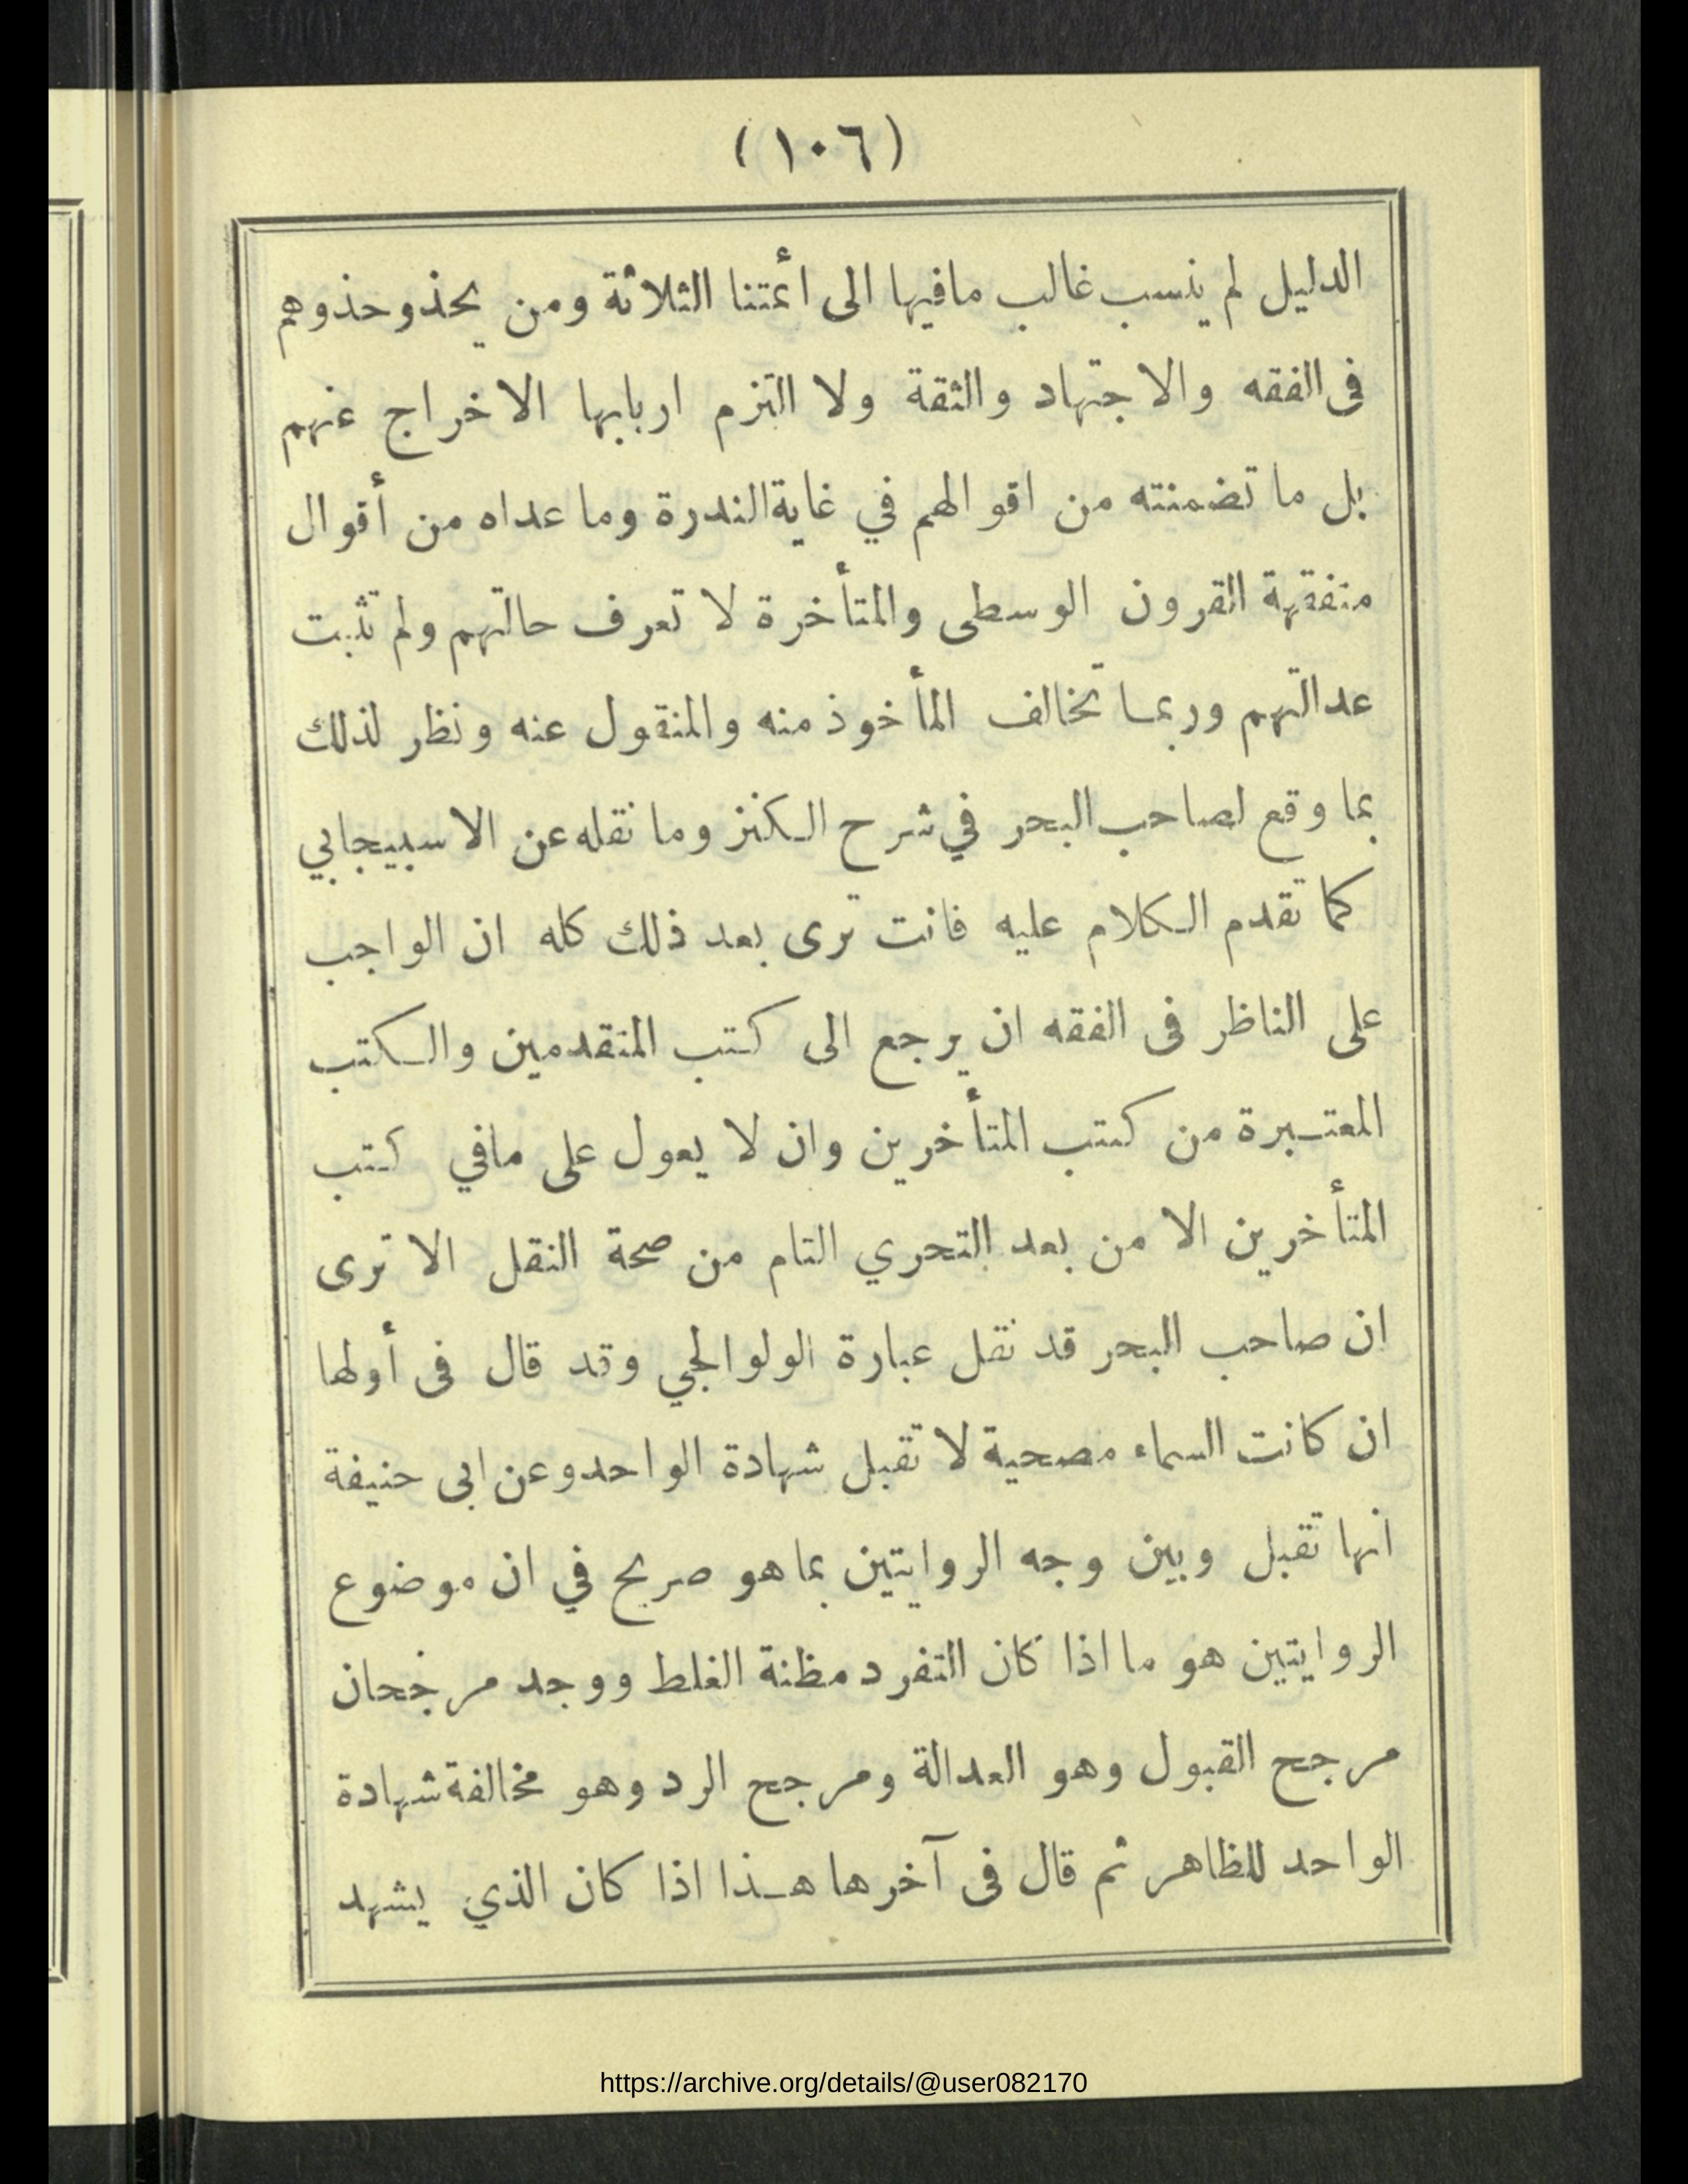 (١٠٦)
الدليل لم ينسب غالب مافيها الى ائمتنا الثلاثة ومن يحذو حذوهم
فى الفقه والاجتهاد والثقة ولا التزم اربابها الاخراج عنهم
بل ما تضمنته من اقوالهم في غاية الندرة وما عداه من أقوال
متفقهة القرون الوسطى والمتأخرة لا تعرف حالتهم ولم تثبت
عدالتهم وربما تخالف المأخوذ منه والمنقول عنه ونظر لذلك
بما وقع لصاحب البحر في شرح الكنز وما نقله عن الاسبيجابي
كما تقدم الكلام عليه فانت ترى بعد ذلك كله ان الواجب
على الناظر فى الفقه ان يرجع الى كتب المتقدمين والكتب
المعتبرة من كتب المتأخرين وان لا يعول على مافي كتب
المتأخرين الا من بعد التحري التام من صحة النقل الا ترى
ان صاحب البحر قد نقل عبارة الولوالجي وقد قال فى أولها
ان كانت السماء مصحية لا تقبل شهادة الواحد وعن ابى حنيفة
انها تقبل وبين وجه الروايتين بما هو صريح في ان موضوع
الروايتين هو ما اذا كان التفرد مظنة الغلط ووجد مرجحان
مرجح القبول وهو العدالة ومرجح الرد وهو مخالفة شهادة
الواحد للظاهر ثم قال فى آخرها هذا اذا كان الذي يشهد
https://archive.org/details/@user082170